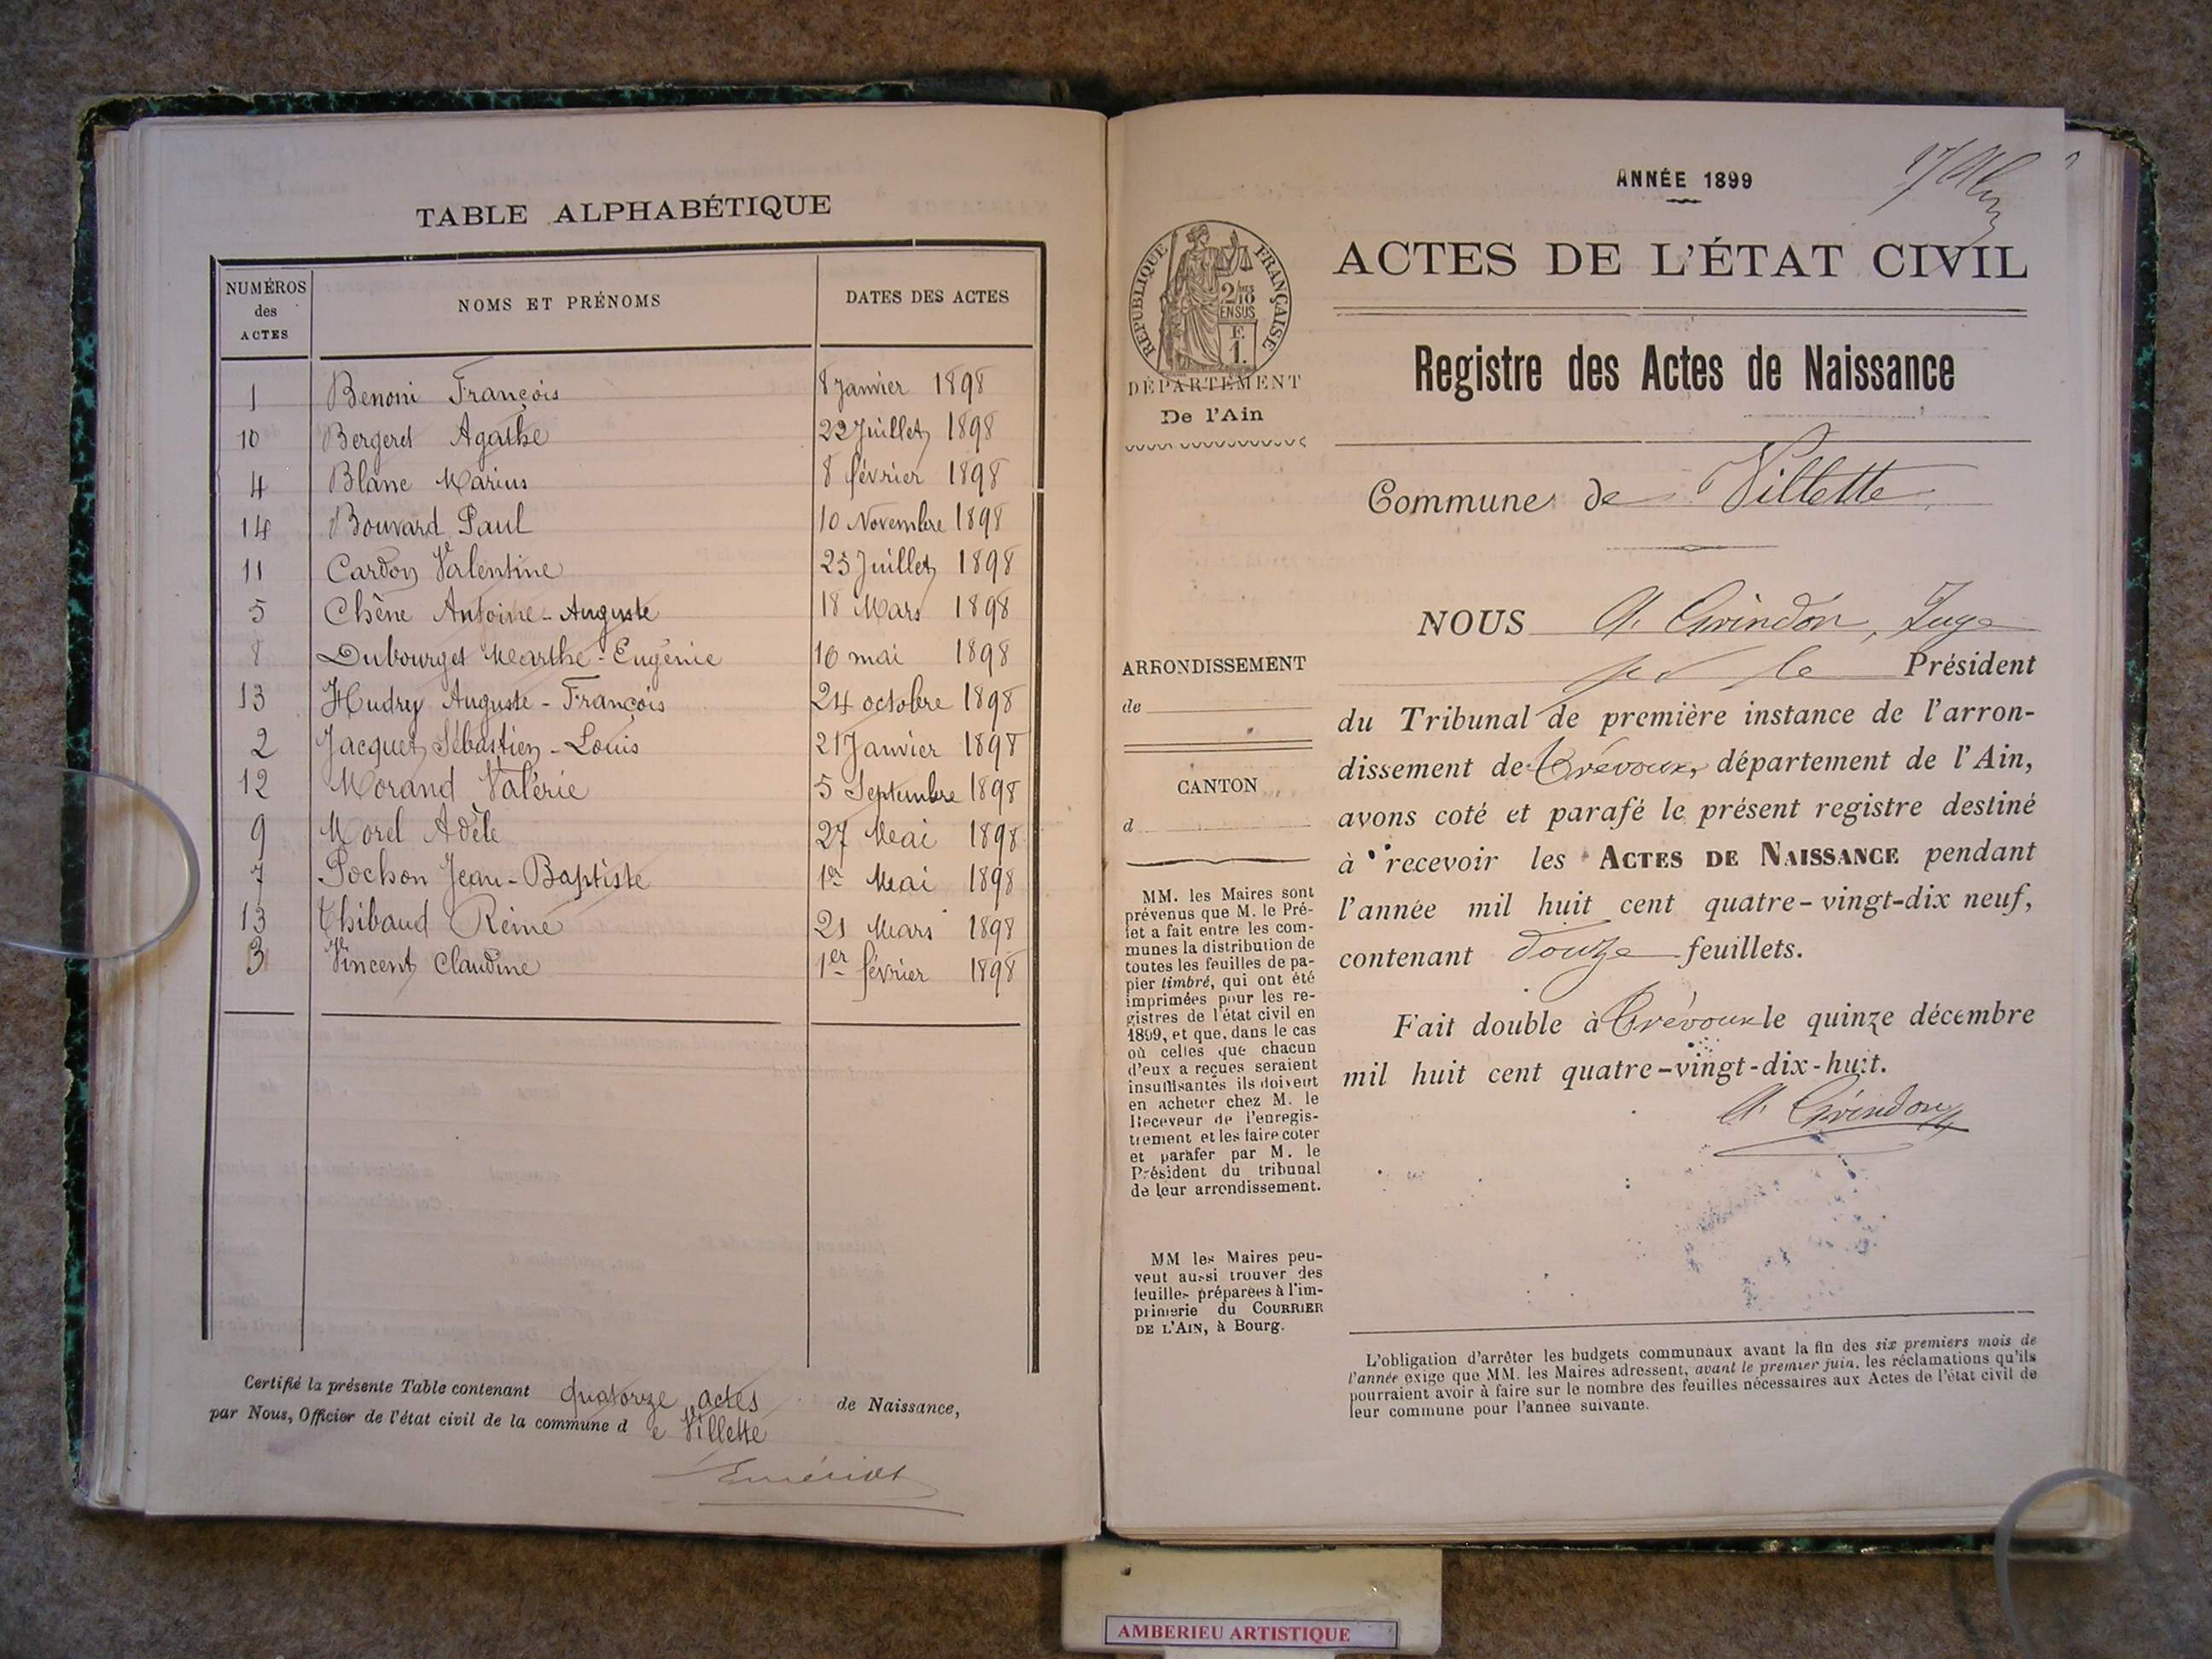 TABLE ALPHABÉTIQUE
NUMÉROS des ACTES NOMS ET PRÉNOMS DATES DES ACTES
1 Benoni François 8 Janvier 1898
10 Bergeret Agathe 22 Juillet 1898
4 Blanc Marius 8 février 1898
14 Bouvard Paul 10 Novembre 1898
11 Cardon Valentine 25 Juillet 1898
5 Chêne Antoine-Auguste 18 Mars 1898
8 Dubourget Marthe-Eugénie 16 mai 1898
13 Hudry Auguste-François 24 octobre 1898
2 Jacquet Sébastien-Louis 21 Janvier 1898
12 Morand Valérie 5 Septembre 1898
9 Morel Adèle 27 Mai 1898
7 Pochon Jean-Baptiste 1er Mai 1898
13 Thibaud Reine 21 Mars 1898
3 Vincent Claudine 1er février 1898
Certifié la présente Table contenant quatorze actes de Naissance,
par Nous, Officier de l'état civil de la commune d e Villette
ANNÉE 1899
RÉPUBLIQUE FRANÇAISE
2/10
EN SUS
E
1.
DÉPARTEMENT
De l'Ain
ACTES DE L'ÉTAT CIVIL
Registre des Actes de Naissance
Commune de Villette
ARRONDISSEMENT
de
CANTON
d
MM. les Maires sont
prévenus que M. le Pré-
fet a fait entre les com-
munes la distribution de
toutes les feuilles de pa-
pier timbré, qui ont été
imprimées pour les re-
gistres de l'état civil en
1899, et que, dans le cas
où celles que chacun
d'eux a reçues seraient
insuffisantes ils doivent
en acheter chez M. le
Receveur de l'enregis-
trement et les faire coter
et parafer par M. le
Président du tribunal
de leur arrondissement.
MM les Maires peu-
vent aussi trouver des
feuilles préparées à l'im-
primerie du COURRIER
DE L'AIN, à Bourg.
NOUS A. Grindon, Juge
pr le Président
du Tribunal de première instance de l'arron-
dissement de Trévoux, département de l'Ain,
avons coté et parafé le présent registre destiné
à recevoir les ACTES DE NAISSANCE pendant
l'année mil huit cent quatre-vingt-dix neuf,
contenant douze feuillets.
Fait double à Trévoux le quinze décembre
mil huit cent quatre-vingt-dix-huit.
A. Grindon
L'obligation d'arrêter les budgets communaux avant la fin des six premiers mois de
l'année exige que MM. les Maires adressent, avant le premier juin, les réclamations qu'ils
pourraient avoir à faire sur le nombre des feuilles nécessaires aux Actes de l'état civil de
leur commune pour l'année suivante.
AMBERIEU ARTISTIQUE